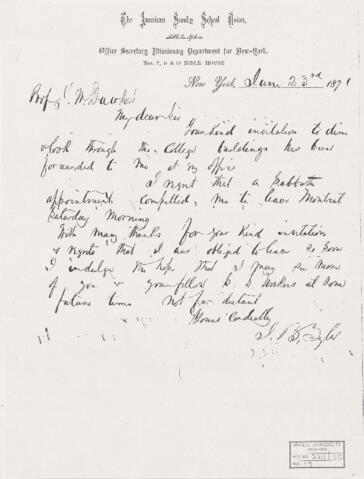 The American Sunday School Union,
Philadelphia
Office Secretary Missionary Department for New-York.
Nos. 7, 8 & 9 BIBLE HOUSE
New York, June 23rd 1871
Prof J. W. Dawson
My dear Sir
Your kind invitation to dine
& look through the College buildings has been
forwarded to me at my office
I regret that a Sabbath
appointment compelled me to leave Montreal
Saturday Morning
With many thanks for your kind invitation
& regrets that I was obliged to leave so soon
I indulge the hope that I may see more
of you & your fellow S. S. Workers at some
future time not far distant
Yours Cordially
J. B. Tyler
McGILL UNIVERSITY
ARCHIVES
ACC. NO.
REF.